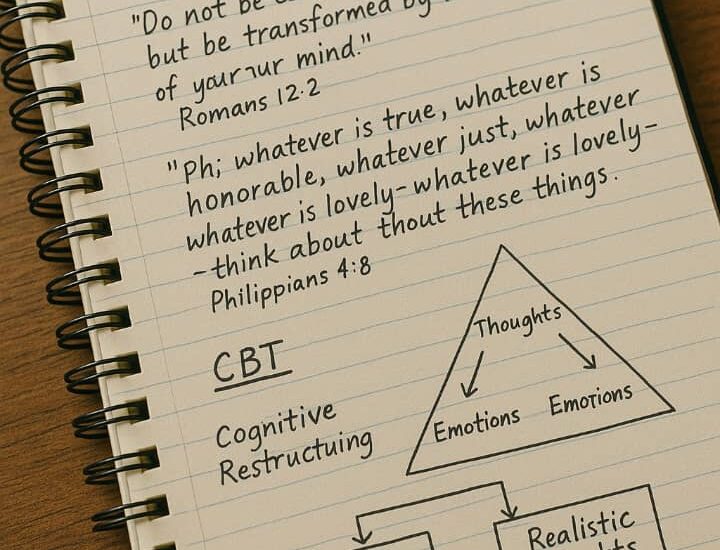 "Do not be
but be transformed by
of your ur mind."
Romans 12.2
"Ph; whatever is true, whatever is
honorable, whatever just, whatever
whatever is lovely-whatever is lovely-
-think about thout these things.
Philippians 4:8
CBT
Cognitive
Restructuing
Thoughts
Emotions Emotions
Realistic